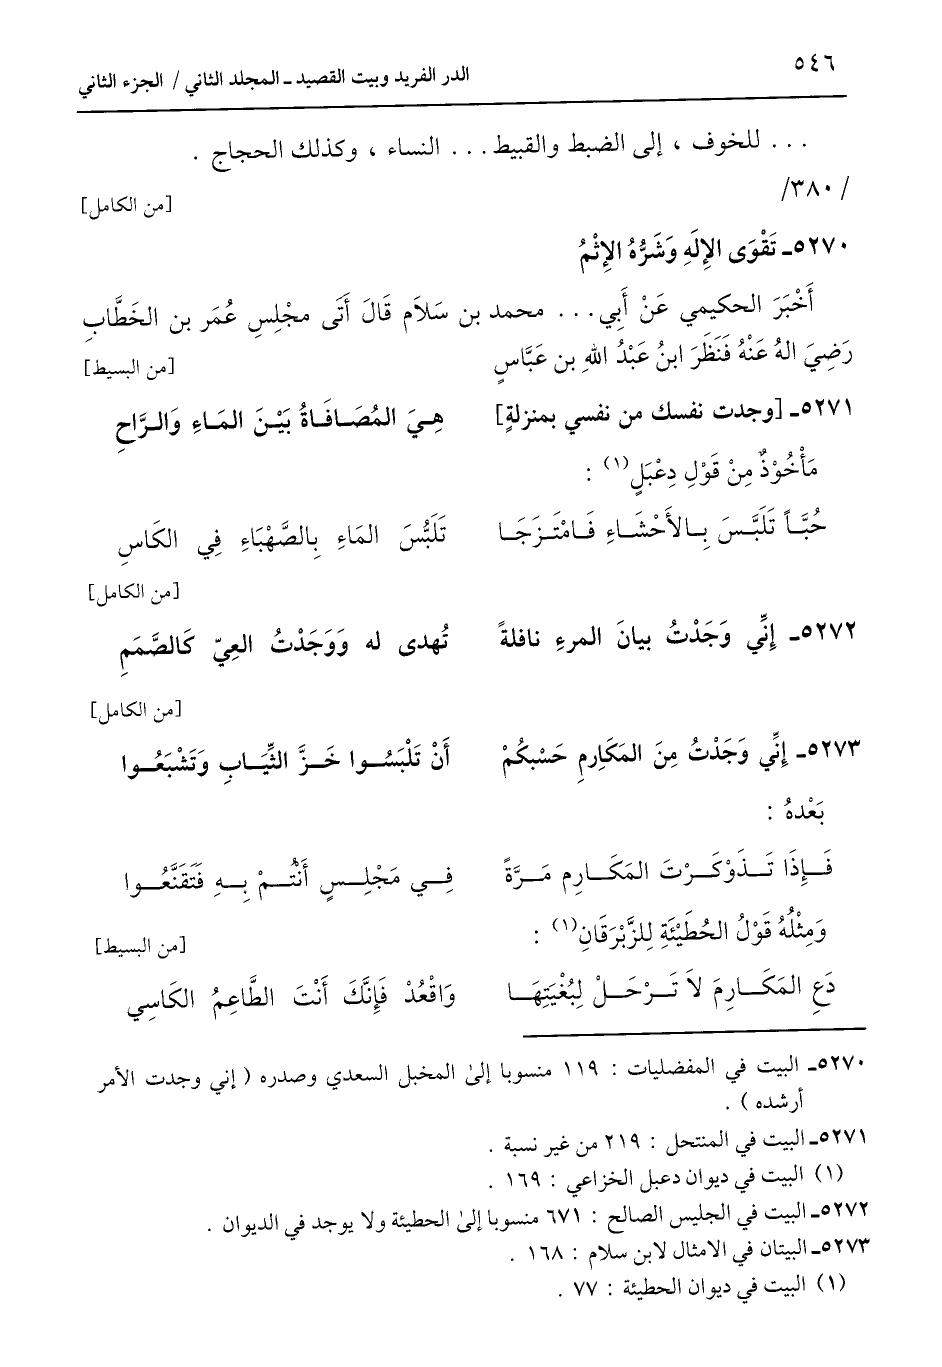 ٥٤٦
الدر الفريد وبيت القصيد ـ المجلد الثاني / الجزء الثاني
... للخوف ، إلى الضبط والقبيط ... النساء ، وكذلك الحجاج .
/٣٨٠/
[من الكامل]
٥٢٧٠ـ تَقْوَى الإِلَهِ وَشَرُّهُ الإِثْمُ
أَخْبَرَ الحكيمي عَنْ أَبِي ... محمد بن سَلاَم قَالَ أَتَى مجْلِسِ عُمَر بن الخَطَّابِ
رَضِيَ الهُ عَنْهُ فَنَظَرَ ابنُ عَبْدُ اللهِ بن عَبَّاسٍ
[من البسيط]
٥٢٧١ـ [وجدت نفسك من نفسي بمنزلةٍ] هِيَ المُصَافَاةُ بَيْنَ المَاءِ وَالرَّاحِ
مَأْخُوْذٌ مِنْ قَوْلِ دِعْبَلٍ(١) :
حُبَّاً تَلَبَّسَ بِالأَحْشَاءِ فَامْتَزَجَا تَلَبُّسَ المَاءِ بِالصَّهْبَاءِ فِي الكَاسِ
[من الكامل]
٥٢٧٢ـ إِنِّي وَجَدْتُ بيانَ المرءِ نافلةً تُهدى له وَوَجَدْتُ العِيّ كَالصَّمَمِ
[من الكامل]
٥٢٧٣ـ إِنِّي وَجَدْتُ مِنَ المَكَارِمِ حَسْبكُمْ أَنْ تَلْبَسُوا خَزَّ الثِّيَابِ وَتَشْبَعُوا
بَعْدهُ :
فَإِذَا تَذَوْكَرْتَ المَكَارِم مَرَّةً فِي مَجْلِسٍ أَنْتُمْ بِهِ فَتَقَنَّعُوا
وَمِثْلُهُ قَوْلُ الحُطَيْئَةِ لِلزَّبْرَقَانِ(١) :
[من البسيط]
دَعِ المَكَارِمَ لاَ تَرْحَلْ لِبُغْيَتِهَا وَاقْعُدْ فَإِنَّكَ أَنْتَ الطَّاعِمُ الكَاسِي
٥٢٧٠ـ البيت في المفضليات : ١١٩ منسوبا إلى المخبل السعدي وصدره ( إني وجدت الأمر
أرشده ) .
٥٢٧١ـ البيت في المنتحل : ٢١٩ من غير نسبة .
(١) البيت في ديوان دعبل الخزاعي : ١٦٩ .
٥٢٧٢ـ البيت في الجليس الصالح : ٦٧١ منسوبا إلى الحطيئة ولا يوجد في الديوان .
٥٢٧٣ـ البيتان في الامثال لابن سلام : ١٦٨ .
(١) البيت في ديوان الحطيئة : ٧٧ .